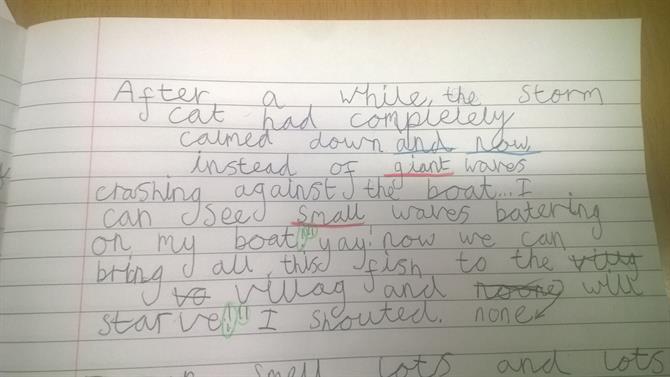 After a while, the storm
cat had completely
calmed down and now
instead of giant waves
crashing against the boat... I
can see small waves batering
on my boat!" yay! now we can
bring all this fish to the
village and will
starve!" I shouted. none
smell lots and lots